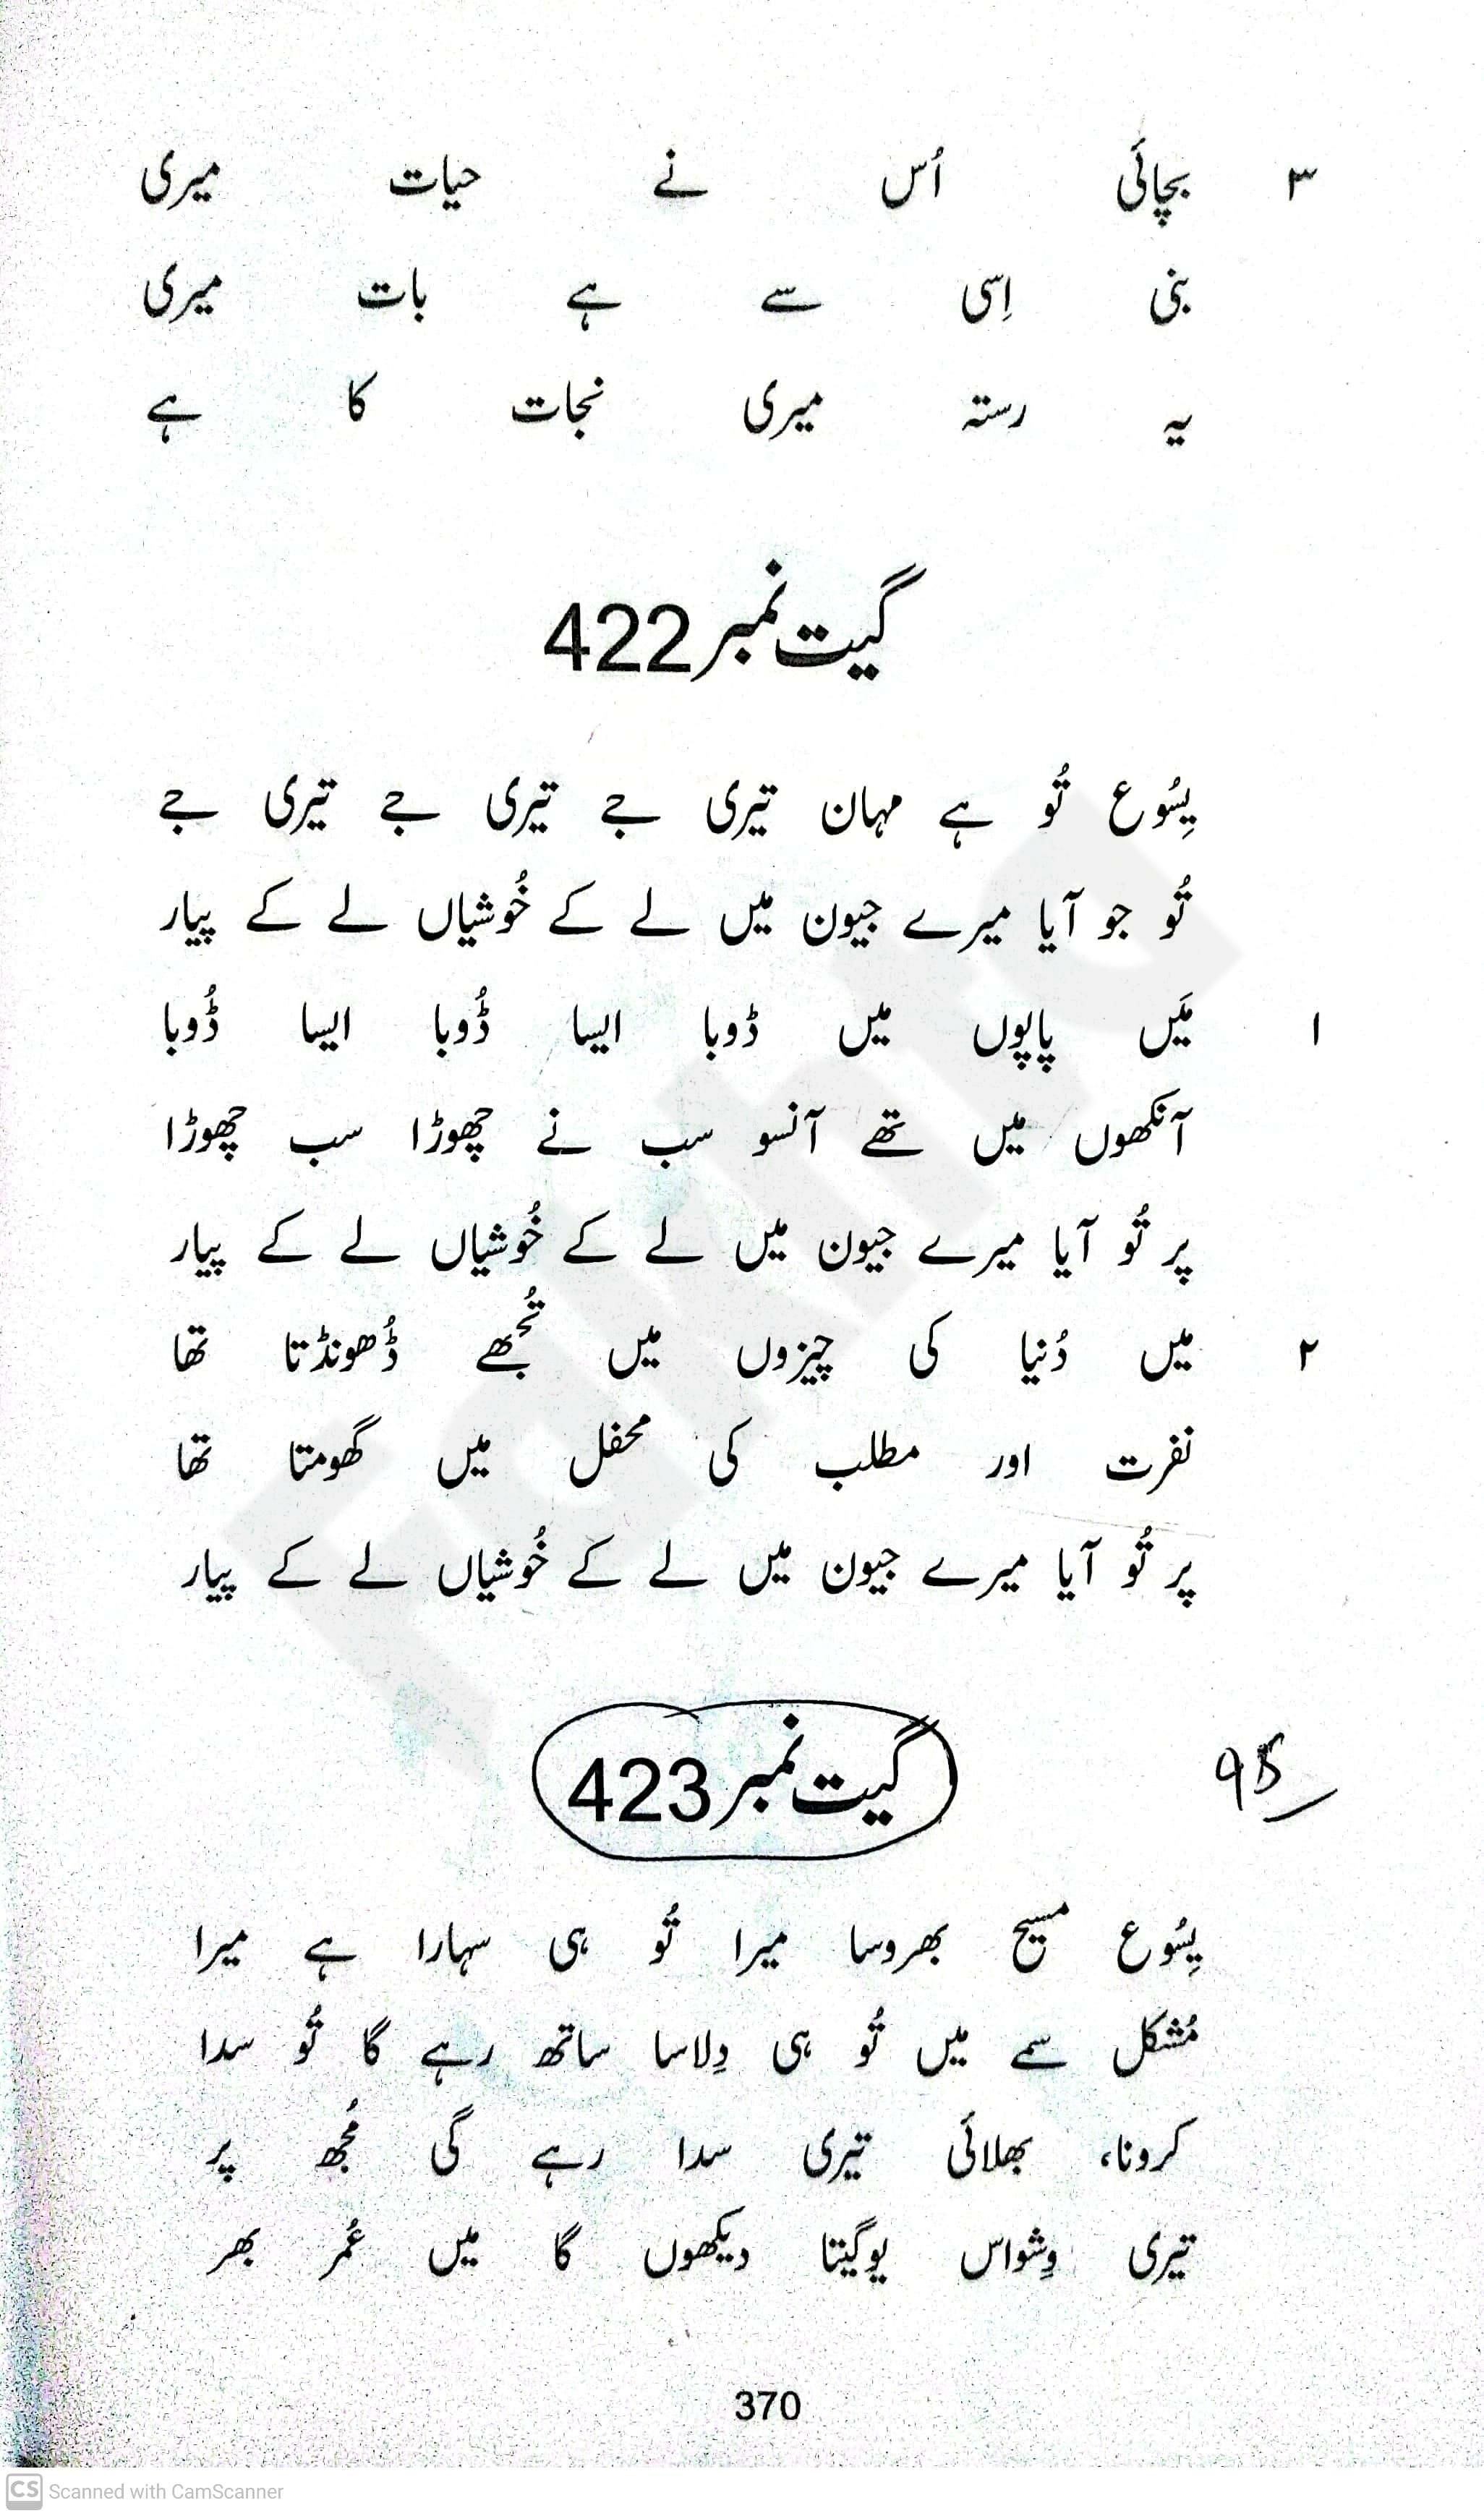 ۳ بچائَی اُس نے حیات میری
بنی اِسی سے ہے بات میری
یہ رستہ میری نجات کا ہے
گیت نمبر 422
یِسُوع تُو ہے مہان تیری جے تیری جے تیری جے
تُو جو آیا میرے جیون میں لے کے خُوشیاں لے کے پیار
۱ مَیں پاپوں میں ڈوبا ایسا ڈُوبا ایسا ڈُوبا
آنکھوں میں تھے آنسو سب نے چھوڑا سب چھوڑا
پر تُو آیا میرے جیون میں لے کے خُوشیاں لے کے پیار
۲ میں دُنیا کی چیزوں میں تُجھے ڈُھونڈتا تھا
نفرت اور مطلب کی محفل میں گھومتا تھا
پر تُو آیا میرے جیون میں لے کے خُوشیاں لے کے پیار
گیت نمبر 423
یِسُوع مسیح بھروسا میرا تُو ہی سہارا ہے میرا
مُشکل سمے میں تُو ہی دِلاسا ساتھ رہے گا تُو سدا
کرونا، بھلائَی تیری سدا رہے گی مُجھ پر
تیری وِشواس یوگیتا دیکھوں گا میں عُمر بھر
370
CS Scanned with CamScanner